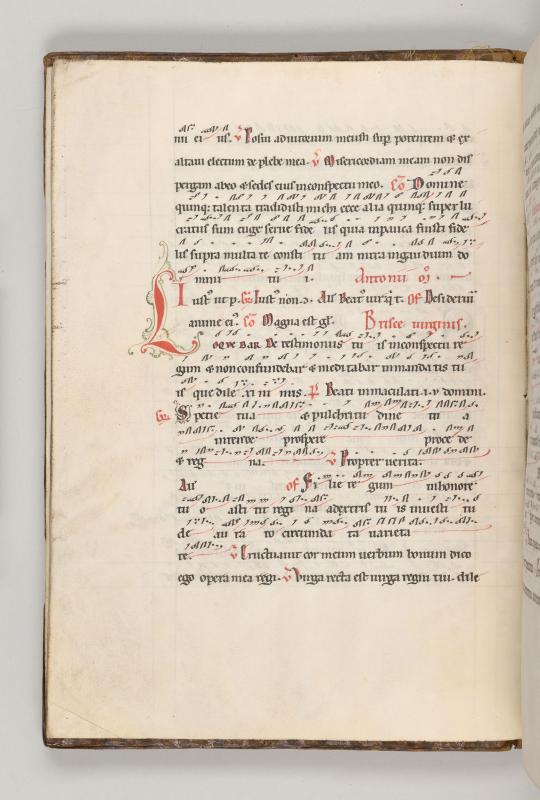 ni ei us. V Posui adiutorium meum sup potentem & ex
altaui electum de plebe mea. V Misericordiam meam non dis
pergam ab eo & sedes eius in conspectu meo. Co Domine
quinq; talenta tradidisti michi ecce alia quinq; super lu
cratus sum euge serue fide lis quia in pauca fuisti fide
lis supra multa te consti tu am intra in gaudium do
mini tu i. Antonii
Iust ut p. Iust non. Beat uir q t. Of Desideriu
anime ei. Co Magna est gl. Brisce uirginis.
Loquebar de testimoniis tu is in conspectu re
gum & non confundebar & meditabar in mandatis tu
is que dile xi ni mis. p Beati inmaculati i. v domini.
Gr Specie tua & pulchritu dine tu a
intende prospere proce de
& reg na. V Propter verita.
Of Fi lie re gum in honore
tu o asti tit regi na a dextris tu is in uesti tu
de au ra to circumda ta varieta
te. V Eructauit cor meum uerbum bonum dico
ego opera mea regi. V Uirga recta est uirga regni tui. dile